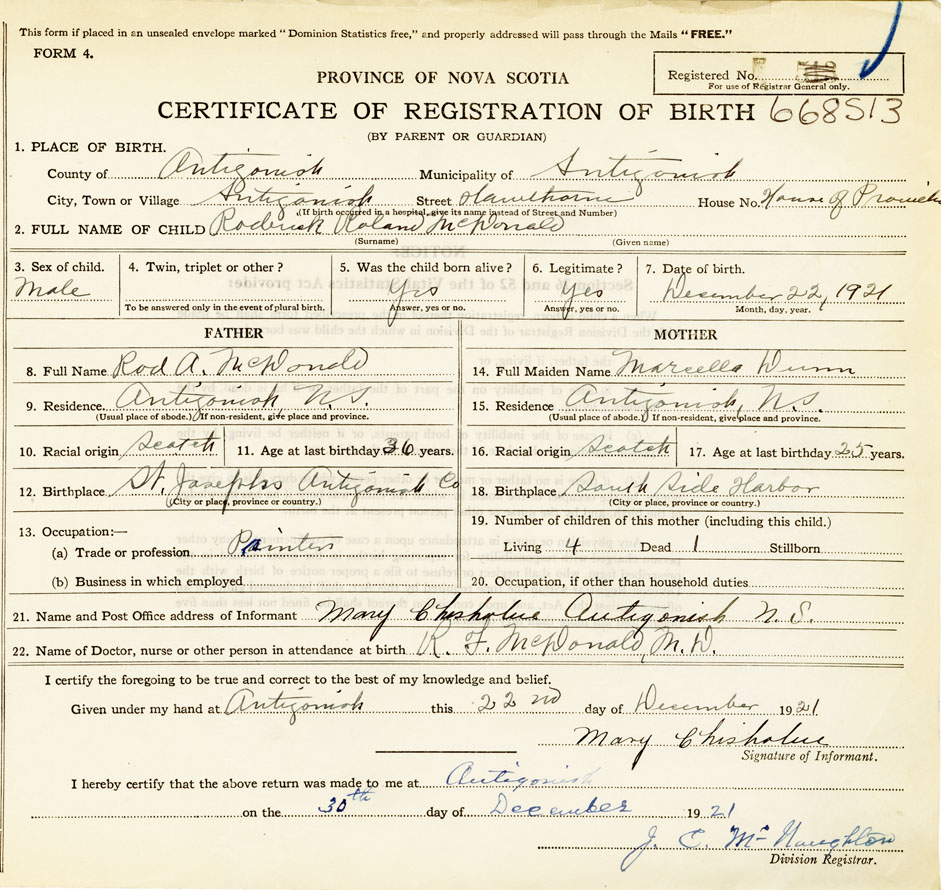 This form if placed in an unsealed envelope marked "Dominion Statistics free," and properly addressed will pass through the Mails "FREE."
FORM 4.
PROVINCE OF NOVA SCOTIA
Registered No.
For use of Registrar General only.
CERTIFICATE OF REGISTRATION OF BIRTH 668513
(BY PARENT OR GUARDIAN)
1. PLACE OF BIRTH.
County of Antigonish Municipality of Antigonish
City, Town or Village Antigonish Street Hawthorne House No. House of
(If birth occurred in a hospital, give its name instead of Street and Number)
2. FULL NAME OF CHILD Roderick Roland McDonald
(Surname) (Given name)
3. Sex of child. 4. Twin, triplet or other? 5. Was the child born alive? 6. Legitimate? 7. Date of birth.
Male Yes Yes December 22, 1921
To be answered only in the event of plural birth. Answer, yes or no. Answer, yes or no. Month, day, year.
FATHER MOTHER
8. Full Name Rod A. McDonald 14. Full Maiden Name Marcella Dunn
9. Residence Antigonish N.S. 15. Residence Antigonish, N.S.
(Usual place of abode.) If non-resident, give place and province. (Usual place of abode.) If non-resident, give place and province.
10. Racial origin Scotch 11. Age at last birthday 36 years. 16. Racial origin Scotch 17. Age at last birthday 25 years.
12. Birthplace St. Josephs Antigonish Co 18. Birthplace South Side Harbor
(City or place, province or country.) (City or place, province or country.)
13. Occupation:— 19. Number of children of this mother (including this child.)
(a) Trade or profession Painter Living 4 Dead 1 Stillborn
(b) Business in which employed 20. Occupation, if other than household duties
21. Name and Post Office address of Informant Mary Chisholm Antigonish N.S.
22. Name of Doctor, nurse or other person in attendance at birth R. F. McDonald, M.D.
I certify the foregoing to be true and correct to the best of my knowledge and belief.
Given under my hand at Antigonish this 22nd day of December 1921
Mary Chisholm
Signature of Informant.
I hereby certify that the above return was made to me at Antigonish
on the 30th day of December 1921
J. C. McNaughton
Division Registrar.